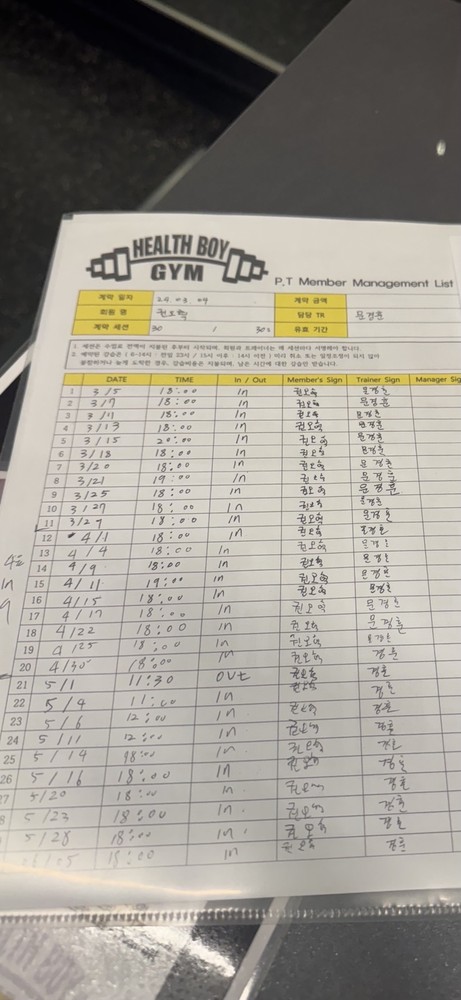 HEALTH BOY
GYM
P.T Member Management List
계약 일자 24. 03. 09 계약 금액
회원 명 권오혁 담당 TR 문경훈
계약 세션 30 / 30s 유효 기간
DATE TIME In / Out Member's Sign Trainer Sign Manager Sig
1 3/5 18:00 In 권오혁 문경훈
2 3/7 18:00 In 권오혁 문경훈
3 3/11 18:00 In 권오혁 문경훈
4 3/13 18:00 In 권오혁 문경훈
5 3/15 20:00 In 권오혁 문경훈
6 3/18 18:00 In 권오혁 문경훈
7 3/20 18:00 In 권오혁 문경훈
8 3/21 19:00 In 권오혁 문경훈
9 3/25 18:00 In 권오혁 문경훈
10 3/27 18:00 In 권오혁 문경훈
11 3/29 18:00 In 권오혁 문경훈
12 4/1 18:00 In 권오혁 문경훈
13 4/4 18:00 In 권오혁 문경훈
14 4/9 18:00 In 권오혁 문경훈
15 4/11 19:00 In 권오혁 문경훈
16 4/15 18:00 In 권오혁 문경훈
17 4/17 18:00 In 권오혁 문경훈
18 4/22 18:00 In 권오혁 문경훈
19 4/25 18:00 In 권오혁 문경훈
20 4/30 18:00 In 권오혁 경훈
21 5/1 11:30 out 권오혁 경훈
22 5/4 11:00 In 권오혁 경훈
23 5/6 12:00 In 권오혁 경훈
24 5/11 12:00 In 권오혁 경훈
25 5/14 18:00 In 권오혁 경훈
26 5/16 18:00 In 권오혁 경훈
27 5/20 18:00 In 권오혁 경훈
8 5/23 18:00 In 권오혁 경훈
5/28 18:00 In 권오혁 경훈
18:00 In 권오혁 경훈
HEALTH BOY